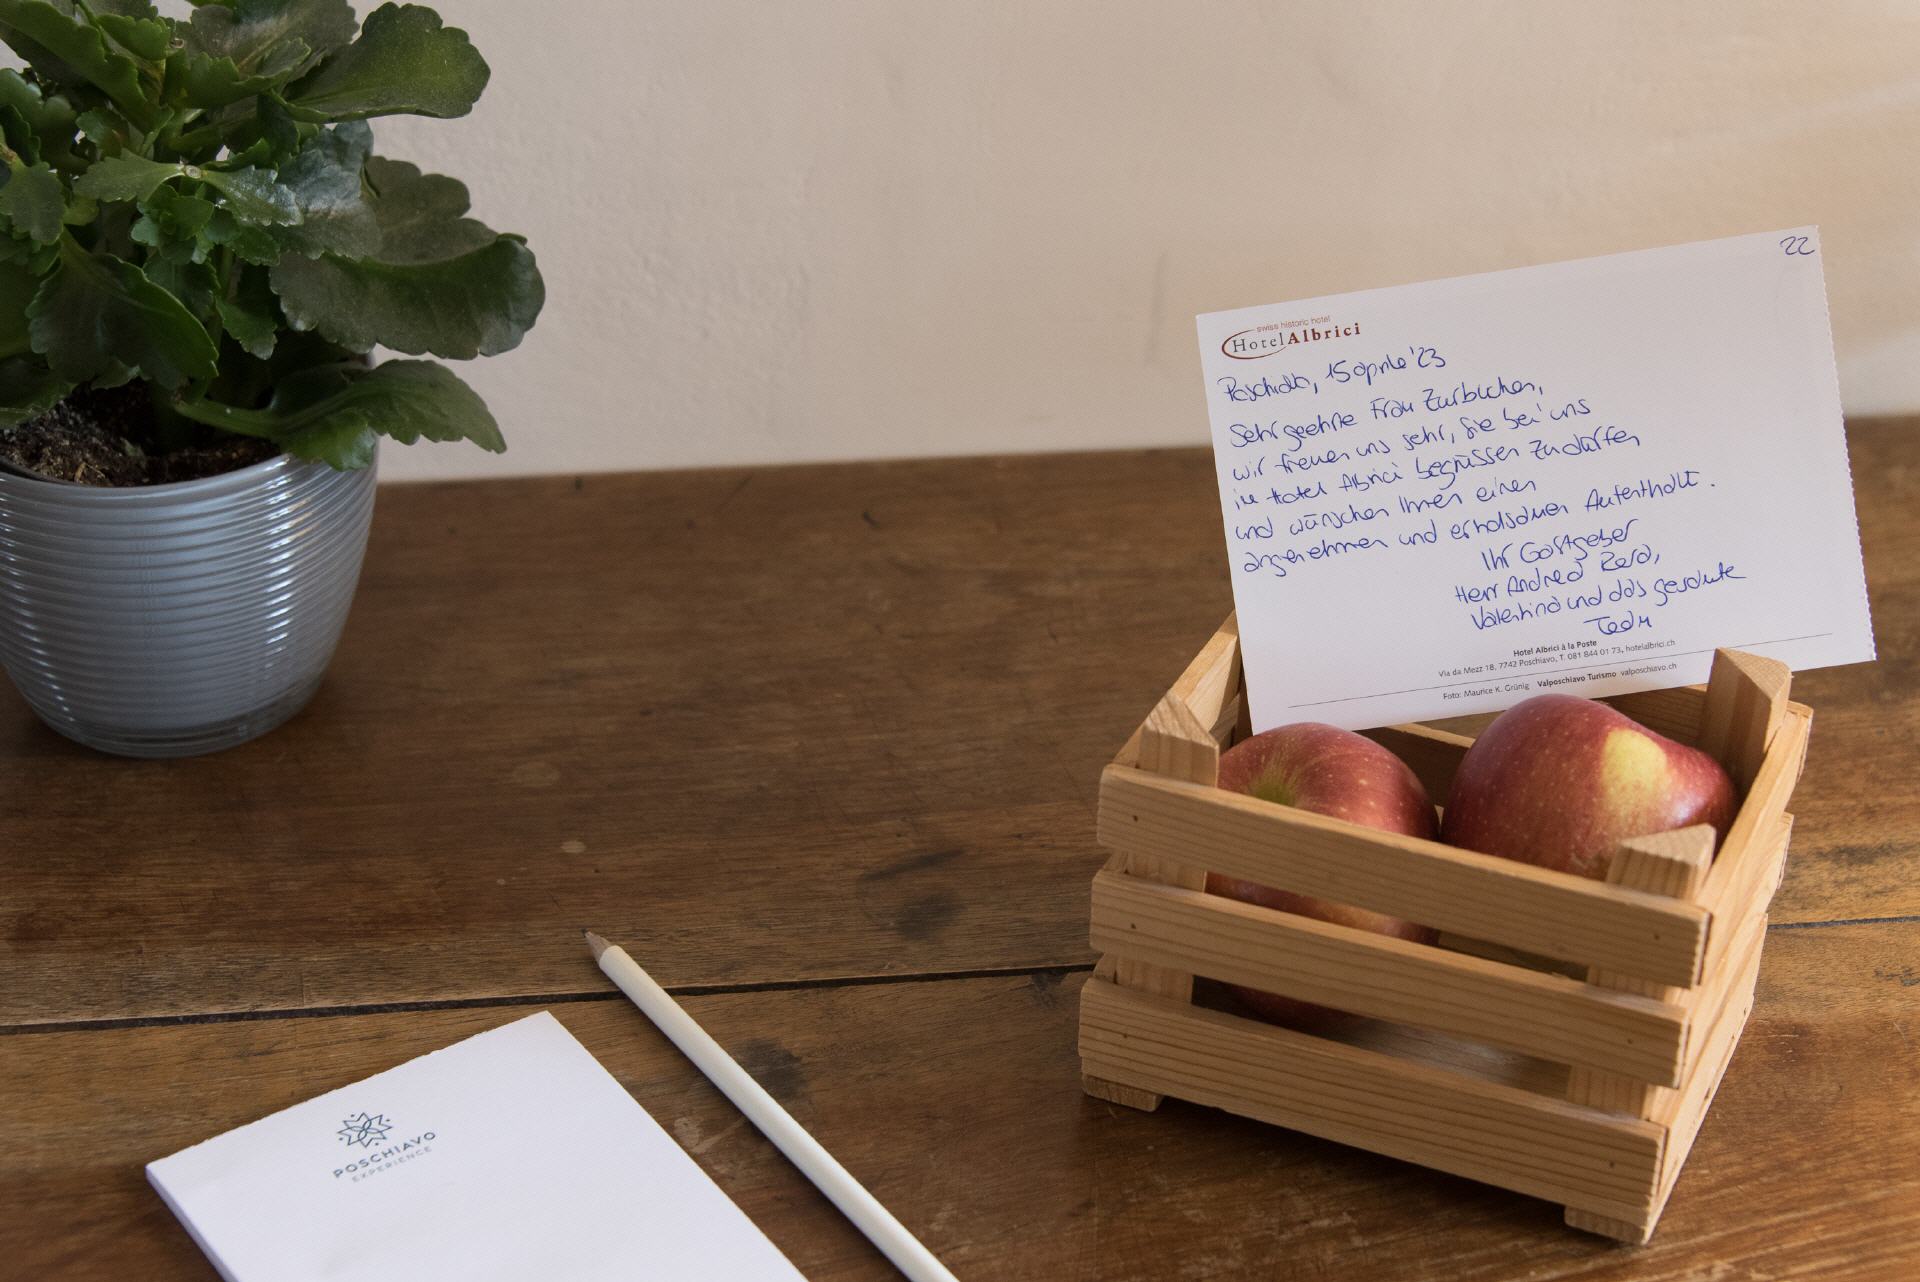 22
swiss historic hotel
Hotel Albrici
Poschiavo, 15 aprile '23
Sehr geehrte Frau Zurbuchen,
wir freuen uns sehr, Sie bei uns
im Hotel Albrici begrüssen zu dürfen
und wünschen Ihnen einen
angenehmen und erholsamen Aufenthalt.
Ihr Gastgeber
Herr Andrea Zero,
Valentina und das gesamte
Team
Hotel Albrici à la Poste
Via da Mezz 18, 7742 Poschiavo, T. 081 844 01 73, hotelalbrici.ch
Foto: Maurice K. Grünig Valposchiavo Turismo valposchiavo.ch
POSCHIAVO
EXPERIENCE